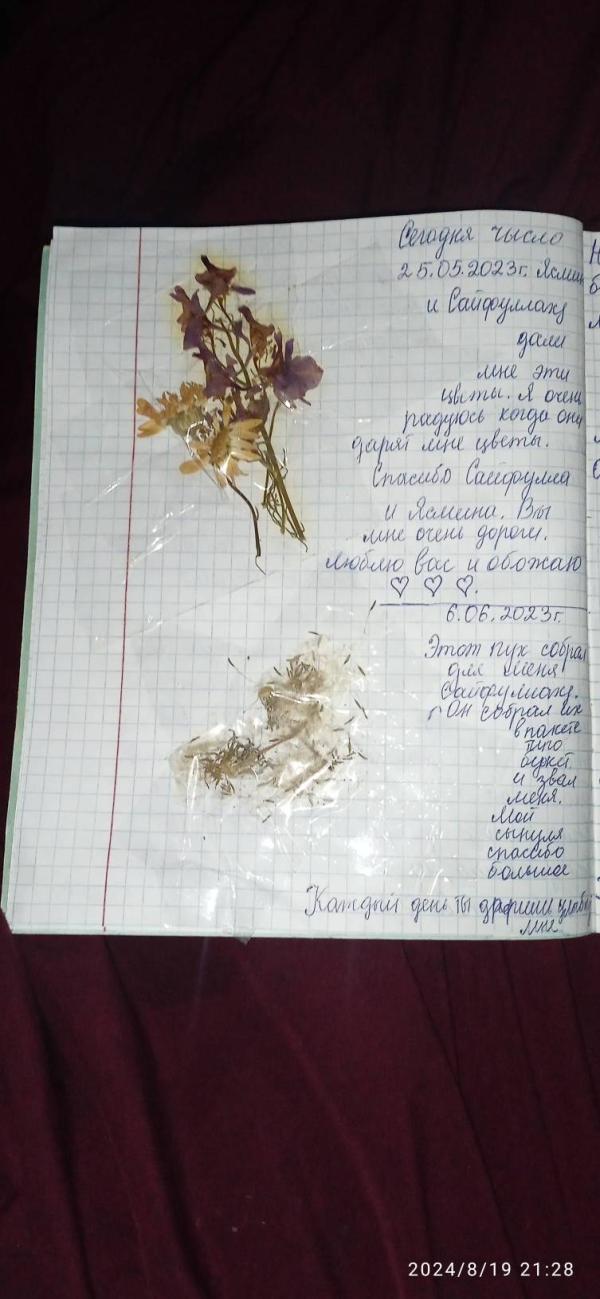 Сегодня число
25.05.2023г. Ясмин
и Сайфуллаху
дали
мне эти
цветы. Я очень
радуюсь когда они
дарят мне цветы.
Спасибо Сайфулла
и Ясмина. Вы
мне очень дороги.
Люблю вас и обожаю
♡ ♡ ♡.
6.06.2023г.
Этот пух собрал
для меня
Сайфуллаху.
Он собрал их
в пакете
и звал
меня.
Мой
сынуля
спасибо
большое
Каждый день ты даришь цветы
мне
2024/8/19 21:28